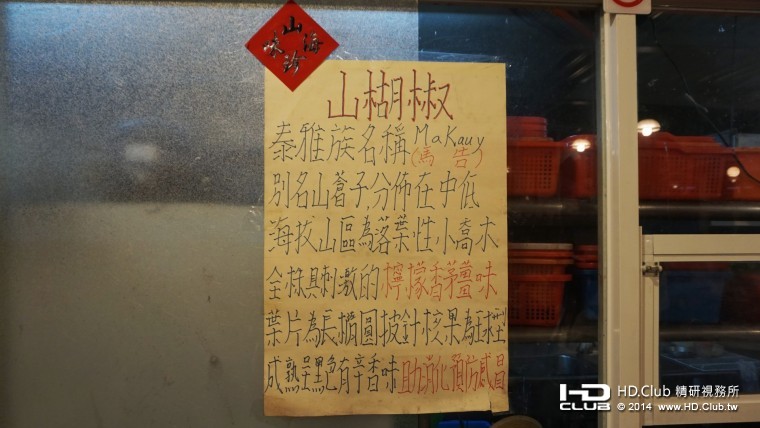 山海珍味
山楜椒
泰雅族名稱MaKauy
(馬告)
別名山蒼子,分佈在中低
海拔山區為落葉性小喬木
全株具刺激的檸檬香茅薑味
葉片為長橢圓披針核果為球型
成熟呈黑色有辛香味助消化預防感冒
HD CLUB
HD.Club 精研視務所
© 2014 www.HD.Club.tw